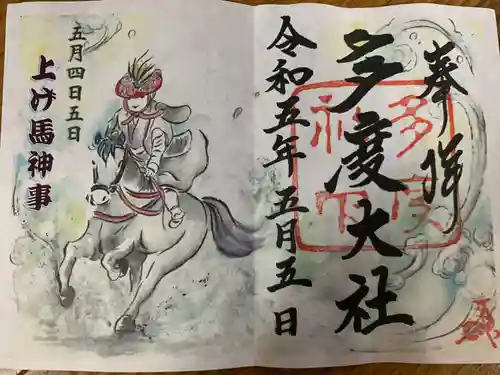 奉拝
多度大社
令和五年五月五日
五月四日五日
上げ馬神事